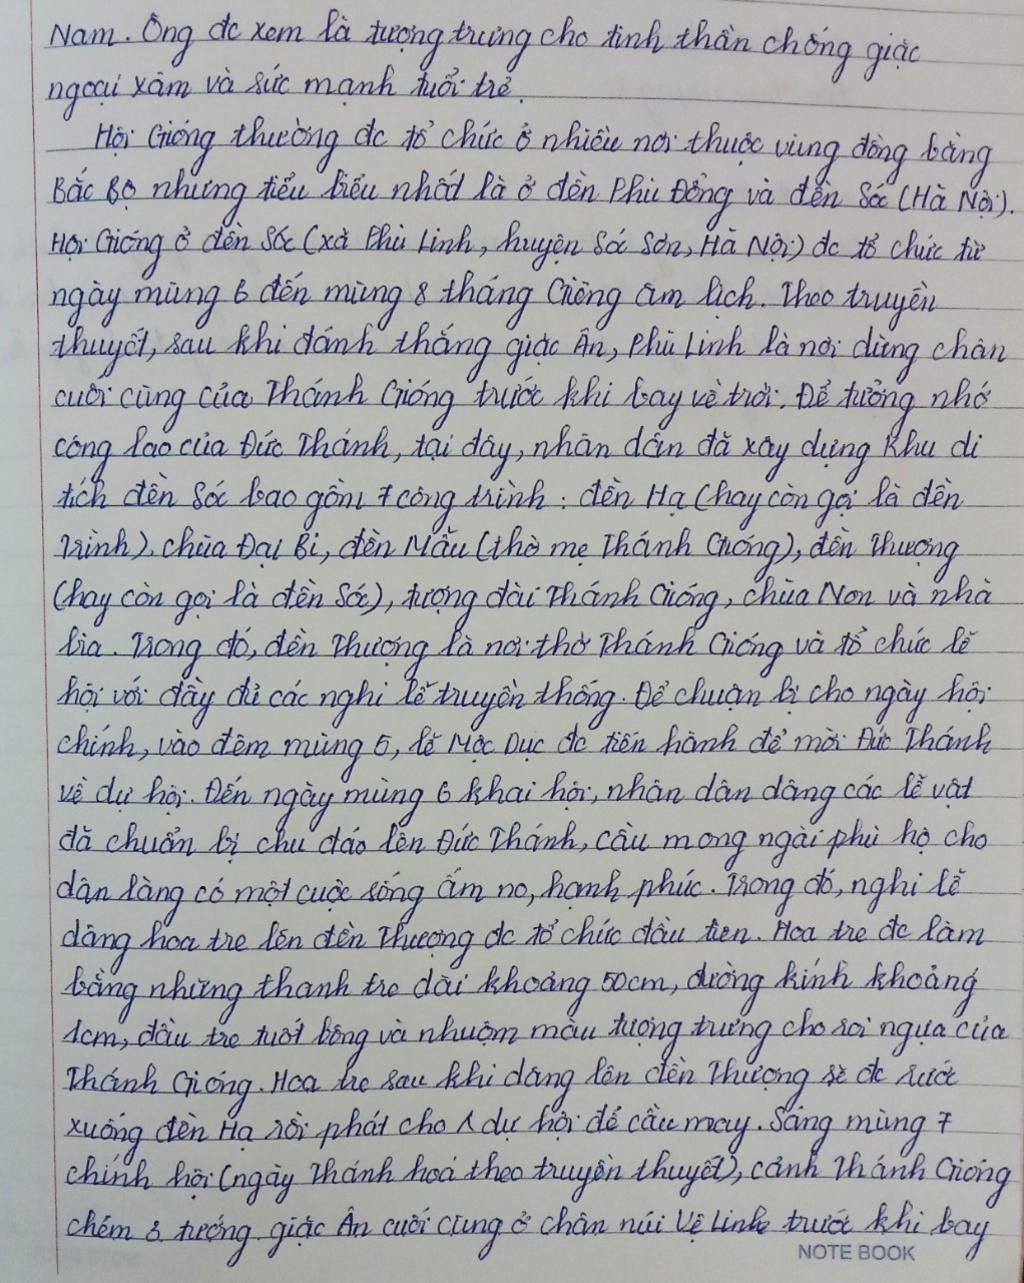 Nam. Ông đc xem là tượng trưng cho tinh thần chống giặc
ngoại xâm và sức mạnh tuổi trẻ.
Hội Gióng thường đc tổ chức ở nhiều nơi thuộc vùng đồng bằng
Bắc Bộ nhưng tiểu biểu nhất là ở đền Phù Đổng và đền Sóc (Hà Nội).
Hội Gióng ở đền Sóc (xã Phù Linh, huyện Sóc Sơn, Hà Nội) đc tổ chức từ
ngày mùng 6 đến mùng 8 tháng Giêng âm lịch. Theo truyền
thuyết, sau khi đánh thắng giặc Ân, Phù Linh là nơi dừng chân
cuối cùng của Thánh Gióng trước khi bay về trời. Để tưởng nhớ
công lao của Đức Thánh, tại đây, nhân dân đã xây dựng Khu di
tích đền Sóc bao gồm 7 công trình: đền Hạ (hay còn gọi là đền
Trình), chùa Đại Bi, đền Mẫu (thờ mẹ Thánh Gióng), đền Thượng
(hay còn gọi là đền Sóc), tượng đài Thánh Gióng, chùa Non và nhà
bia. Trong đó, đền Thượng là nơi thờ Thánh Gióng và tổ chức lễ
hội với đầy đủ các nghi lễ truyền thống. Để chuẩn bị cho ngày hội
chính, vào đêm mùng 5, lễ Mộc Dục đc tiến hành để mời Đức Thánh
về dự hội. Đến ngày mùng 6 khai hội, nhân dân dâng các lễ vật
đã chuẩn bị chu đáo lên Đức Thánh, cầu mong ngài phù hộ cho
dân làng có một cuộc sống ấm no, hạnh phúc. Trong đó, nghi lễ
dâng hoa tre lên đền Thượng đc tổ chức đầu tiên. Hoa tre đc làm
bằng những thanh tre dài khoảng 50cm, đường kính khoảng
1cm, đầu tre tuốt bông và nhuộm màu tượng trưng cho roi ngựa của
Thánh Gióng. Hoa tre sau khi dâng lên đền Thượng sẽ đc rước
xuống đền Hạ rồi phát cho dự hội để cầu may. Sáng mùng 7
chính hội (ngày Thánh hoá theo truyền thuyết), cảnh Thánh Gióng
chém 3 tướng giặc Ân cuối cùng ở chân núi Vệ Linh trước khi bay
NOTE BOOK